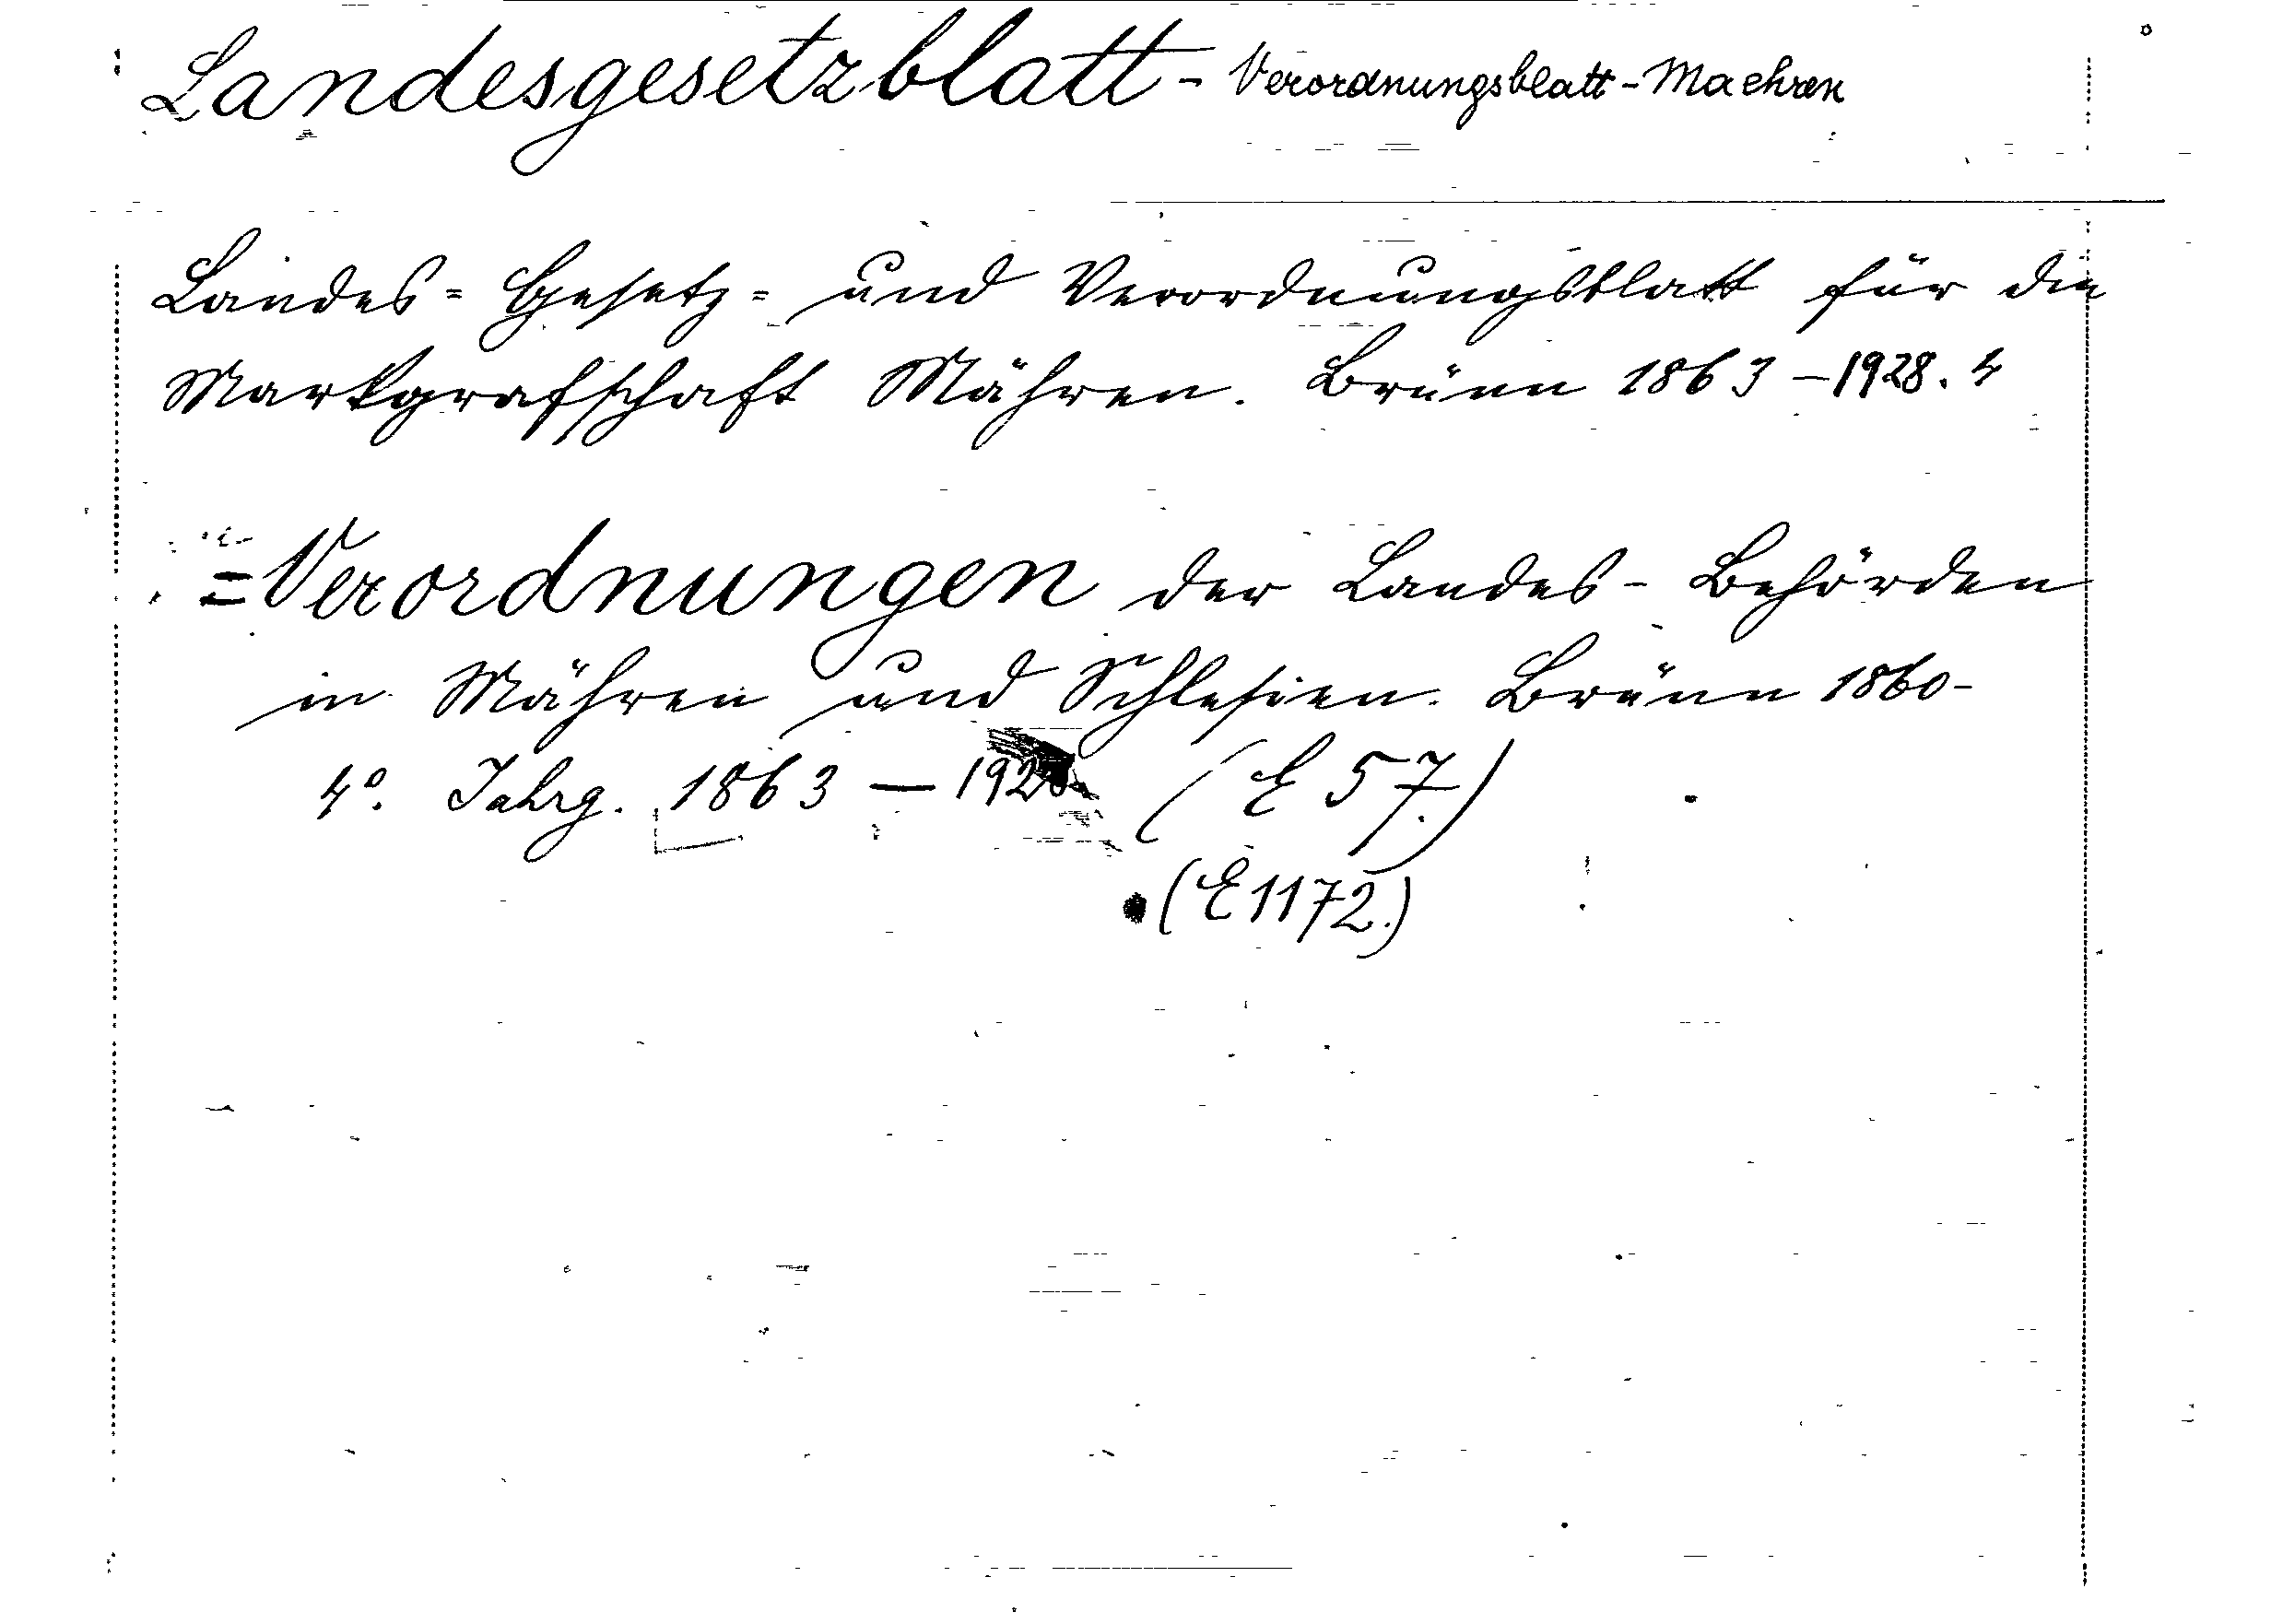 Landesgesetzblatt - Verordnungsblatt - Maehren
Landes = Gesetz = und Verordnungsblatt für die
Markgrafschaft Mähren. Brünn 1863 - 1928. 4
= Verordnungen der Landes - Behörden
in Mähren und Schlesien. Brünn 1860 -
4°. Jahrg. 1863 — (E 57.)
(E 1172.)